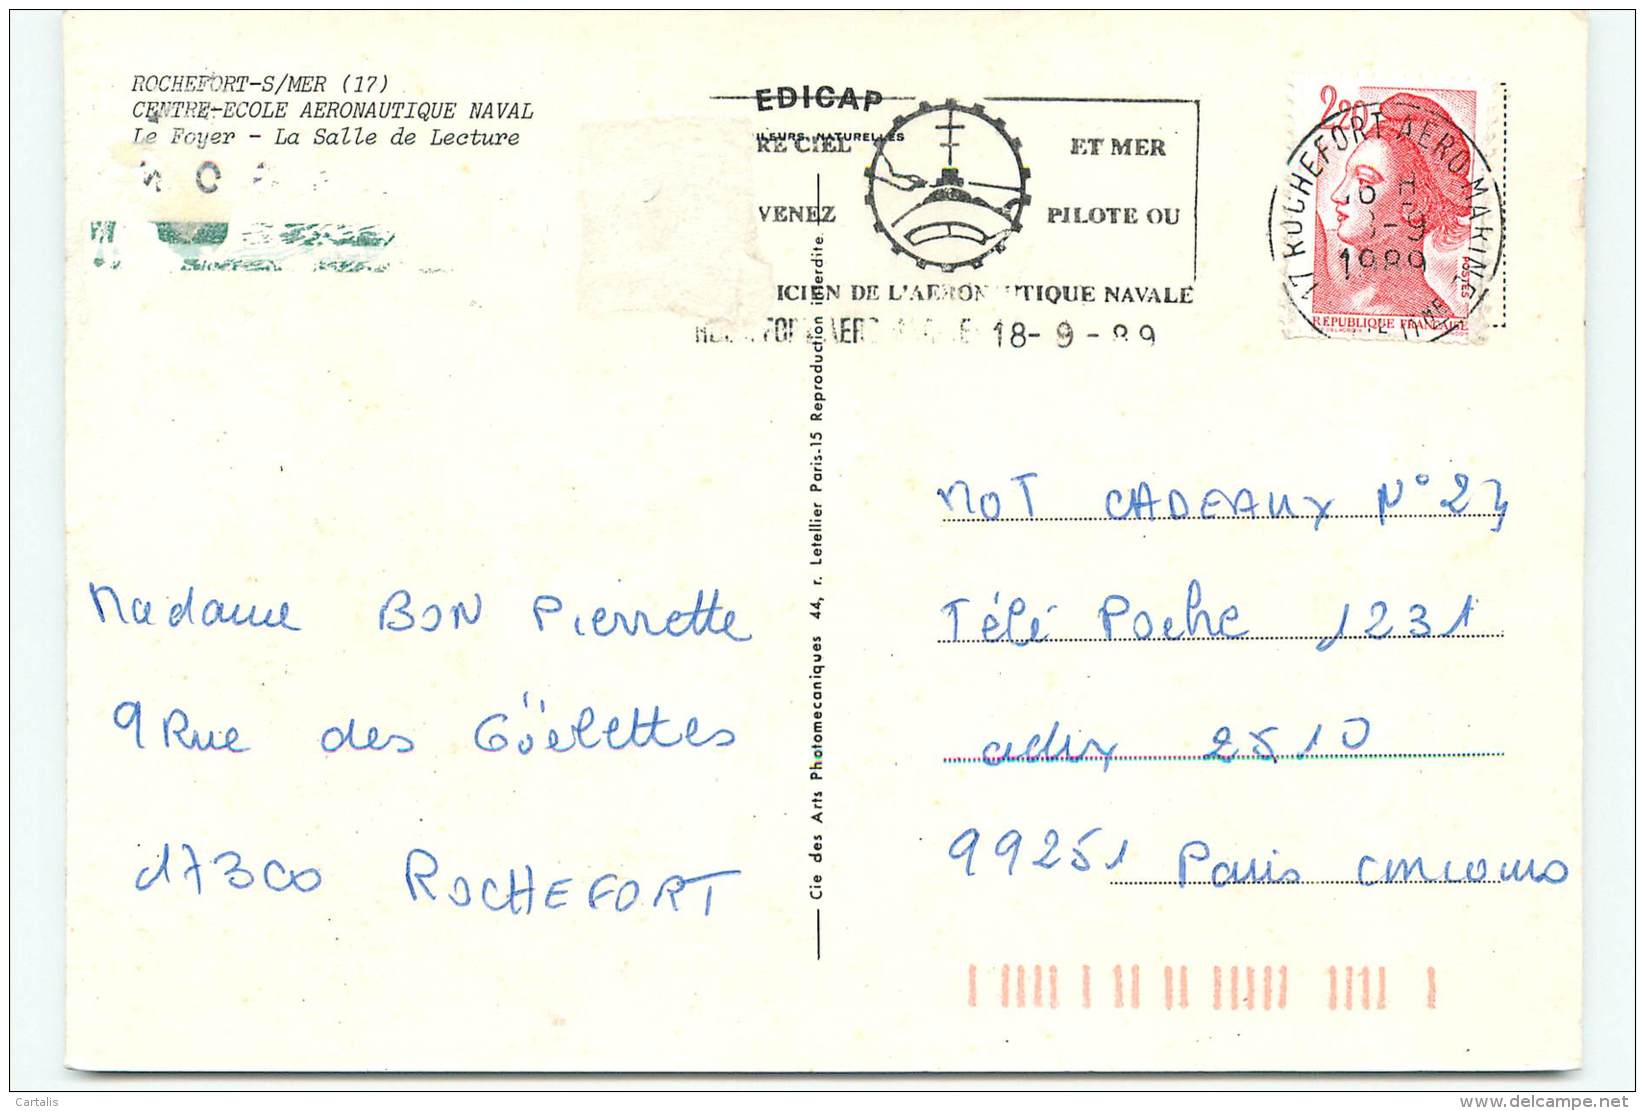 ROCHEFORT-S/MER (17)
CENTRE-ECOLE AERONAUTIQUE NAVAL
Le Foyer - La Salle de Lecture
EDICAP
NATURELLES
RE CIEL ET MER
VENEZ PILOTE OU
ICIEN DE L'AERONAUTIQUE NAVALE
18-9-89
2,20
POSTES
REPUBLIQUE FRANÇAISE
17 ROCHEFORT AERO MARINE
18-9
1989
Cie des Arts Photomecaniques 44, r. Letellier Paris-15 Reproduction interdite
Madame BON Pierrette
9 Rue des Göelettes
17300 ROCHEFORT
MOT CADEAUX N° 23
Télé Poche 1231
cedex 2510
99251 Paris concours
Cartalis
www.delcampe.net